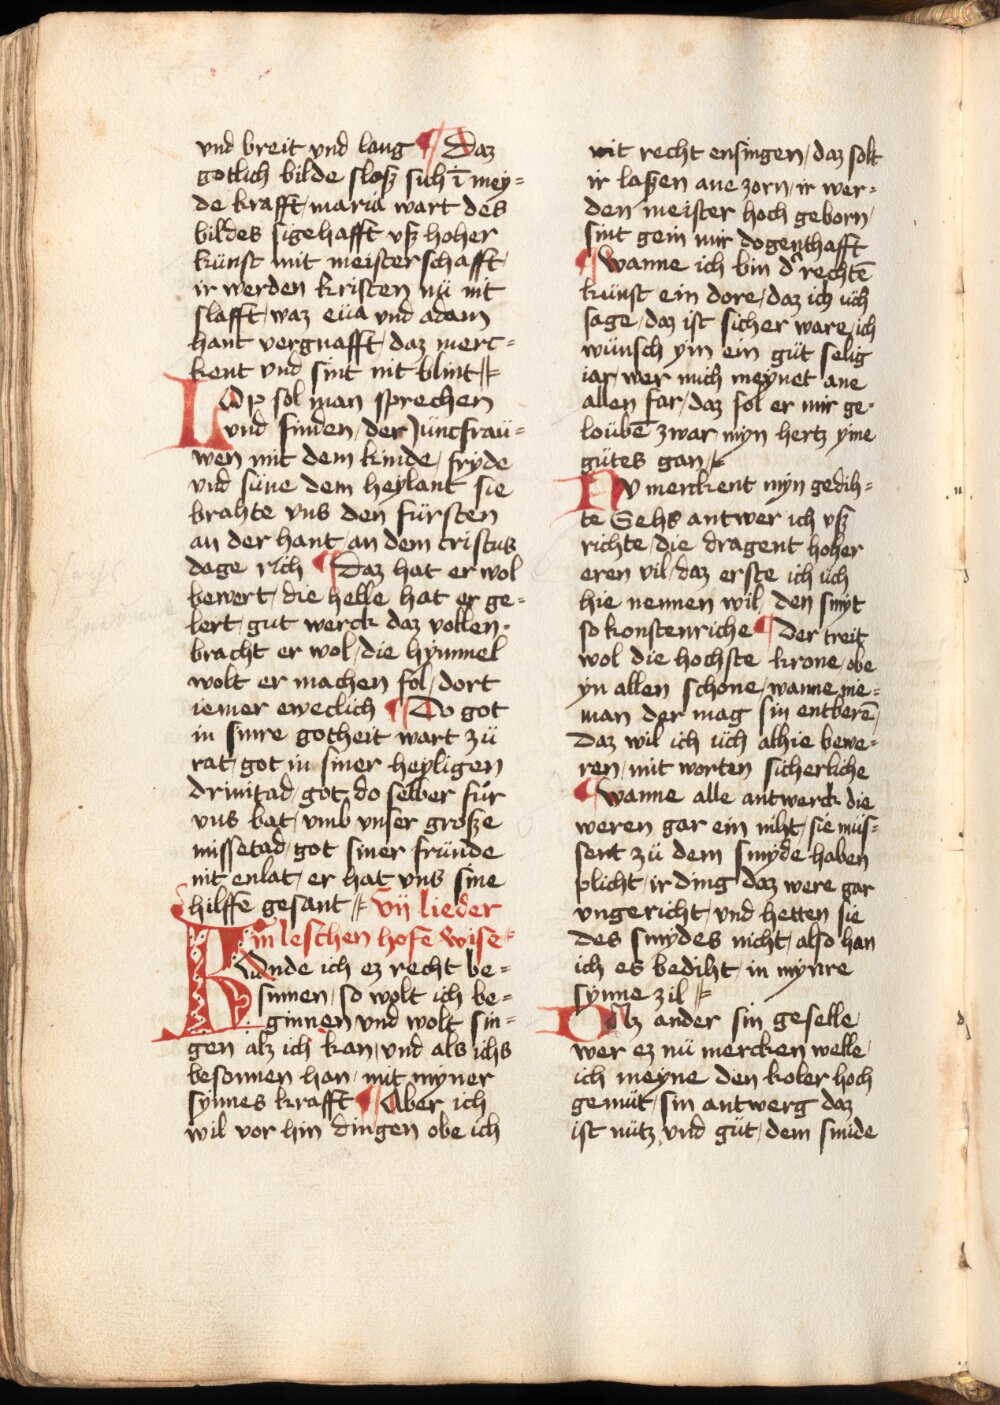 vnd breit vnd lang ¶ Daz
gotlich bilde slosz sich ī mey=
de krafft/ maria wart des
bildes sigehafft vsz hoher
kunst mit meisterschafft/
ir werden kristen nü nit
slafft/ waz eua vnd adam
hant vergnafft/ daz merc=
kent vnd sint nit blint //
LOp sol man sprechen
vnd sinden/ der Juncfrau=
wen mit dem kinde/ fryde
vnd süne dem heylant sie
brahte vns den fürsten
an der hant/ an dem cristus
dage rich ¶ Daz hat er wol
bewert/ die helle hat er ge=
lert/ gut werck daz vollen=
bracht er wol/ die hymmel
wolt er machen fol/ dort
iemer eweclich ¶ Do got
in sinre gotheit wart zü
rat/ got in siner heyligen
drinitad/ got do selber für
vns bat/ vmb vnser grosze
missetad/ got siner fründe
nit enlat/ er hat vns sine
hilffe gesant // vij lieder
im leschen hofe wise //
KVnde ich ez recht be=
sinnen/ so wolt ich be=
ginnen vnd wolt sin=
gen alz ich kan/ vnd als ichs
besonnen han/ mit myner
synnes krafft ¶ Aber ich
wil vor hin dingen obe ich
nit recht ensingen/ daz solt
ir laszen ane zorn/ ir wer=
den meister hoch geborn/
sint gein mir dogenthafft
¶ Wanne ich bin d' rechtē
kunst ein dore/ daz ich üch
sage/ daz ist sicher ware/ ich
wünsch ym ein güt selig
iar/ wer mich meynet ane
allen far/ daz sol er mir ge=
loubē zwar myn hertz yme
gütes gan //
NV merckent myn gedih=
te Sehs antwer ich vsz
richte/ die dragent hoher
eren vil/ daz erste ich üch
hie nennen wil/ den smyt
so konstenriche ¶ Der treit
wol die hochste krone/ obe
yn allen schone/ wanne nie=
man der mag sin entberē/
Daz wil ich üch alhie bewe=
ren/ mit worten sicherliche
¶ Wanne alle antwerck die
weren gar ein niht/ sie müs=
sent zü dem smyde haben
plicht/ ir ding daz were gar
vngericht/ vnd hetten sie
des smydes nicht/ also han
ich es bediht/ in mynre
synne zil //
DAz ander sin geselle/
wer ez nü mercken welle/
ich meyne den koler hoch
gemüt/ sin antwerg daz
ist nütz vnd güt/ dem smide